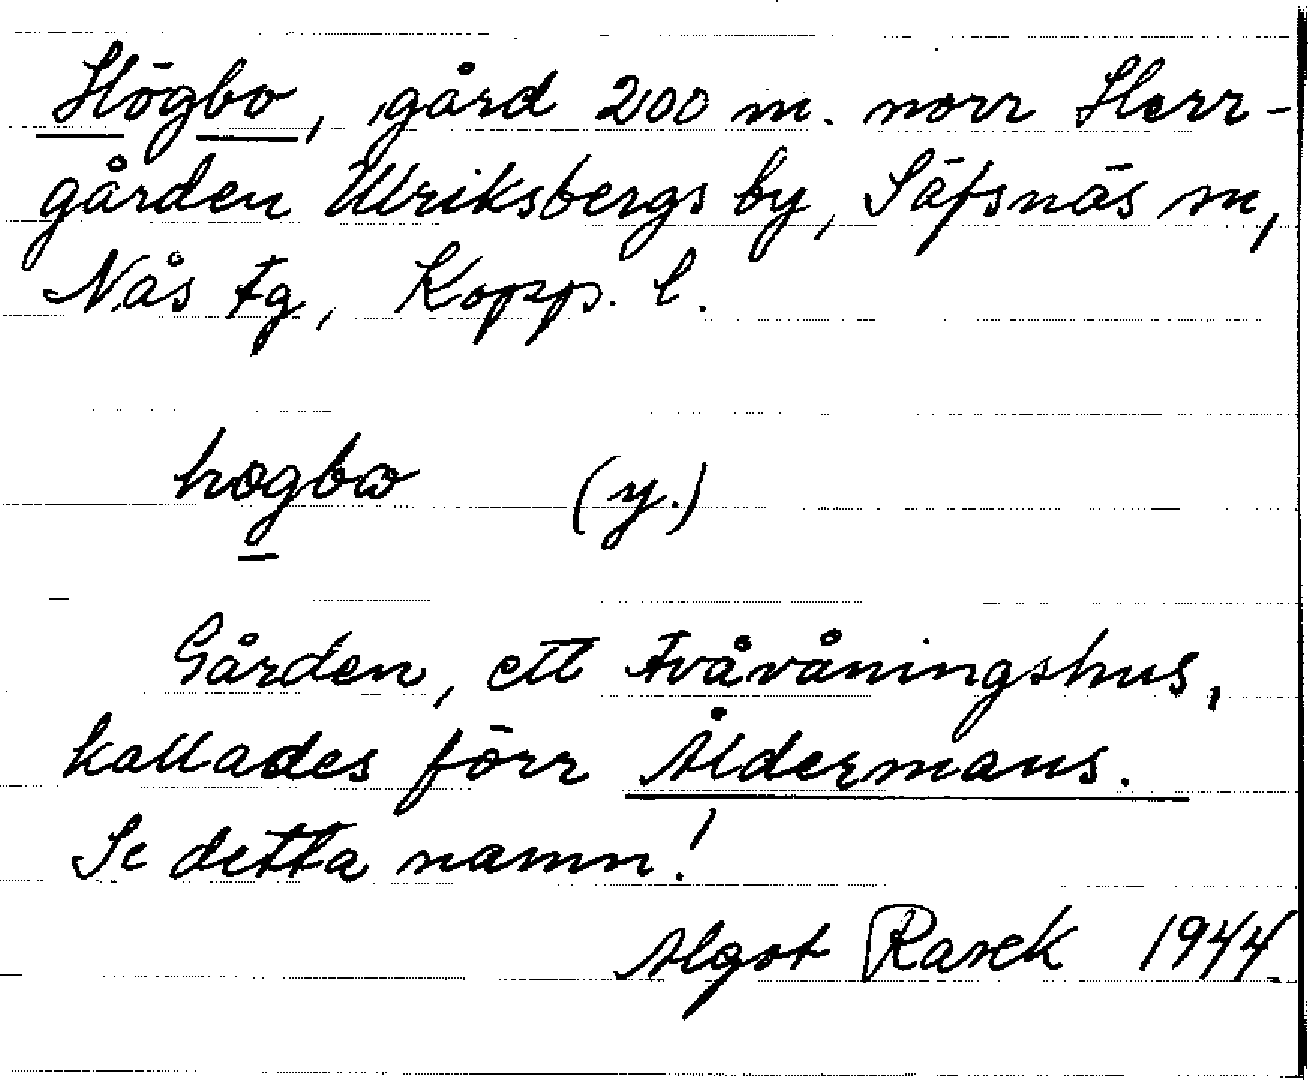 Högbo, gård 200 m. norr Herr-
gården Ulriksbergs by, Säfsnäs sn,
Nås tg, Kopp. l.
høgbω (y.)
Gården, ett tvåvåningshus,
kallades förr Åldermans.
Se detta namn!
Algot Rasek 1944.